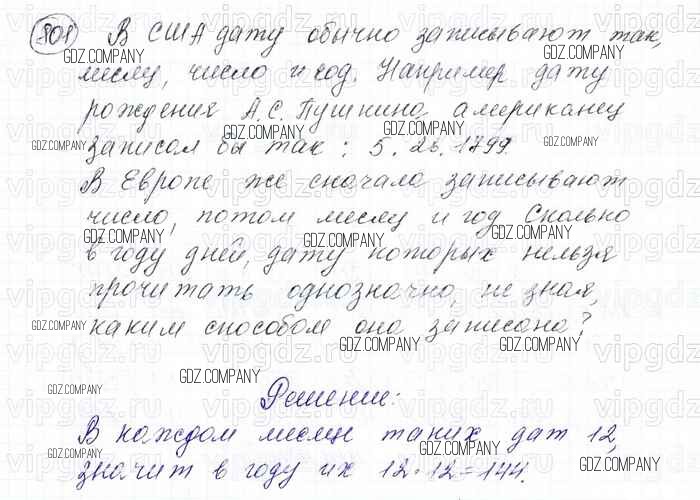 808 В США дату обычно записывают так,
месяц, число и год. Например дату
рождения А.С. Пушкина американец
записал бы так: 5.26.1799.
В Европе же сначала записывают
число, потом месяц и год. Сколько
в году дней, дату которых нельзя
прочитать однозначно, не зная,
каким способом она записана?
Решение:
В каждом месяце таких дат 12,
значит в году их 12·12=144.
GDZ.COMPANY
vipgdz.ru